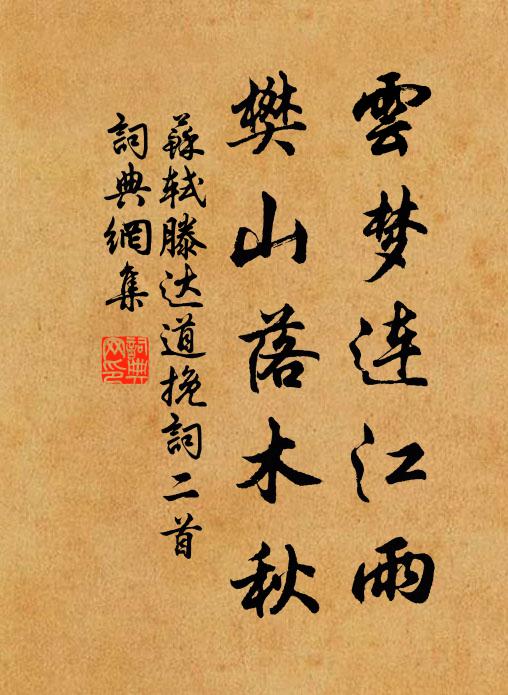 雲梦连江雨
樊山落木秋
蘇轼滕达道挽詞二首
詞典網集
詞典
网印